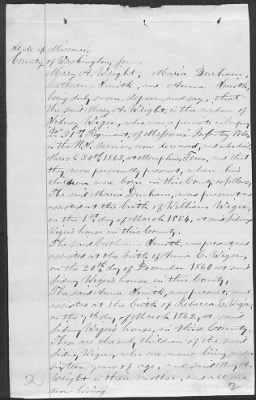 State of Missouri,
County of Washington, ss.
Mary A. Wright, Maria Durham,
Catharine Smith, and Anna
being duly sworn, depose, and say, that
the said Mary A. Wright, is the widow of
Sidney Wiger, who was a private in Compy
31st Regiment, of Missouri Infantry Vols
in the U.S. Service, now deceased, and who died
March 30th 1863, at Memphis, Tenn, and that
they were personally present, when his
children were born, in this County as follows,
The said Maria Durham, was present and
assisted at the birth of William Wiger,
on the 1st day of March 1854, at said Sidney
Wiger's house in this County.
The said Catharine Smith, was present and
assisted at the birth of Anna C. Wiger,
on the 20th day of December 1860 at said
Sidney Wiger's house, in this County,
The said Anna was present, and
assisted at the birth of Rebecca C. Wiger,
on the 7th day of March 1862, at said
Sidney Wiger's house, in this County.
are the only children of the said
Sidney Wiger, who are now living under
sixteen years of age, and said Mary A.
Wright is their mother, and all are
now living
2
2